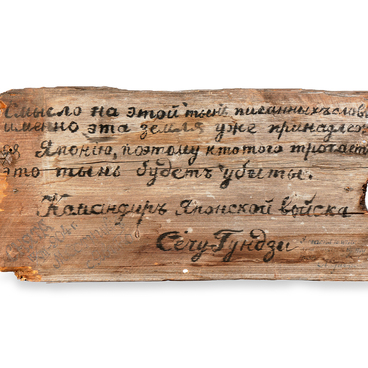 Смысло на этой тынь писанныхъ слов
именно эта земля уже принадлеж
ѣя Японію, поэтому ктотого трогаетъ
это тынь будетъ убиты.
Командиръ Японской войска
Сечу-Гундзи